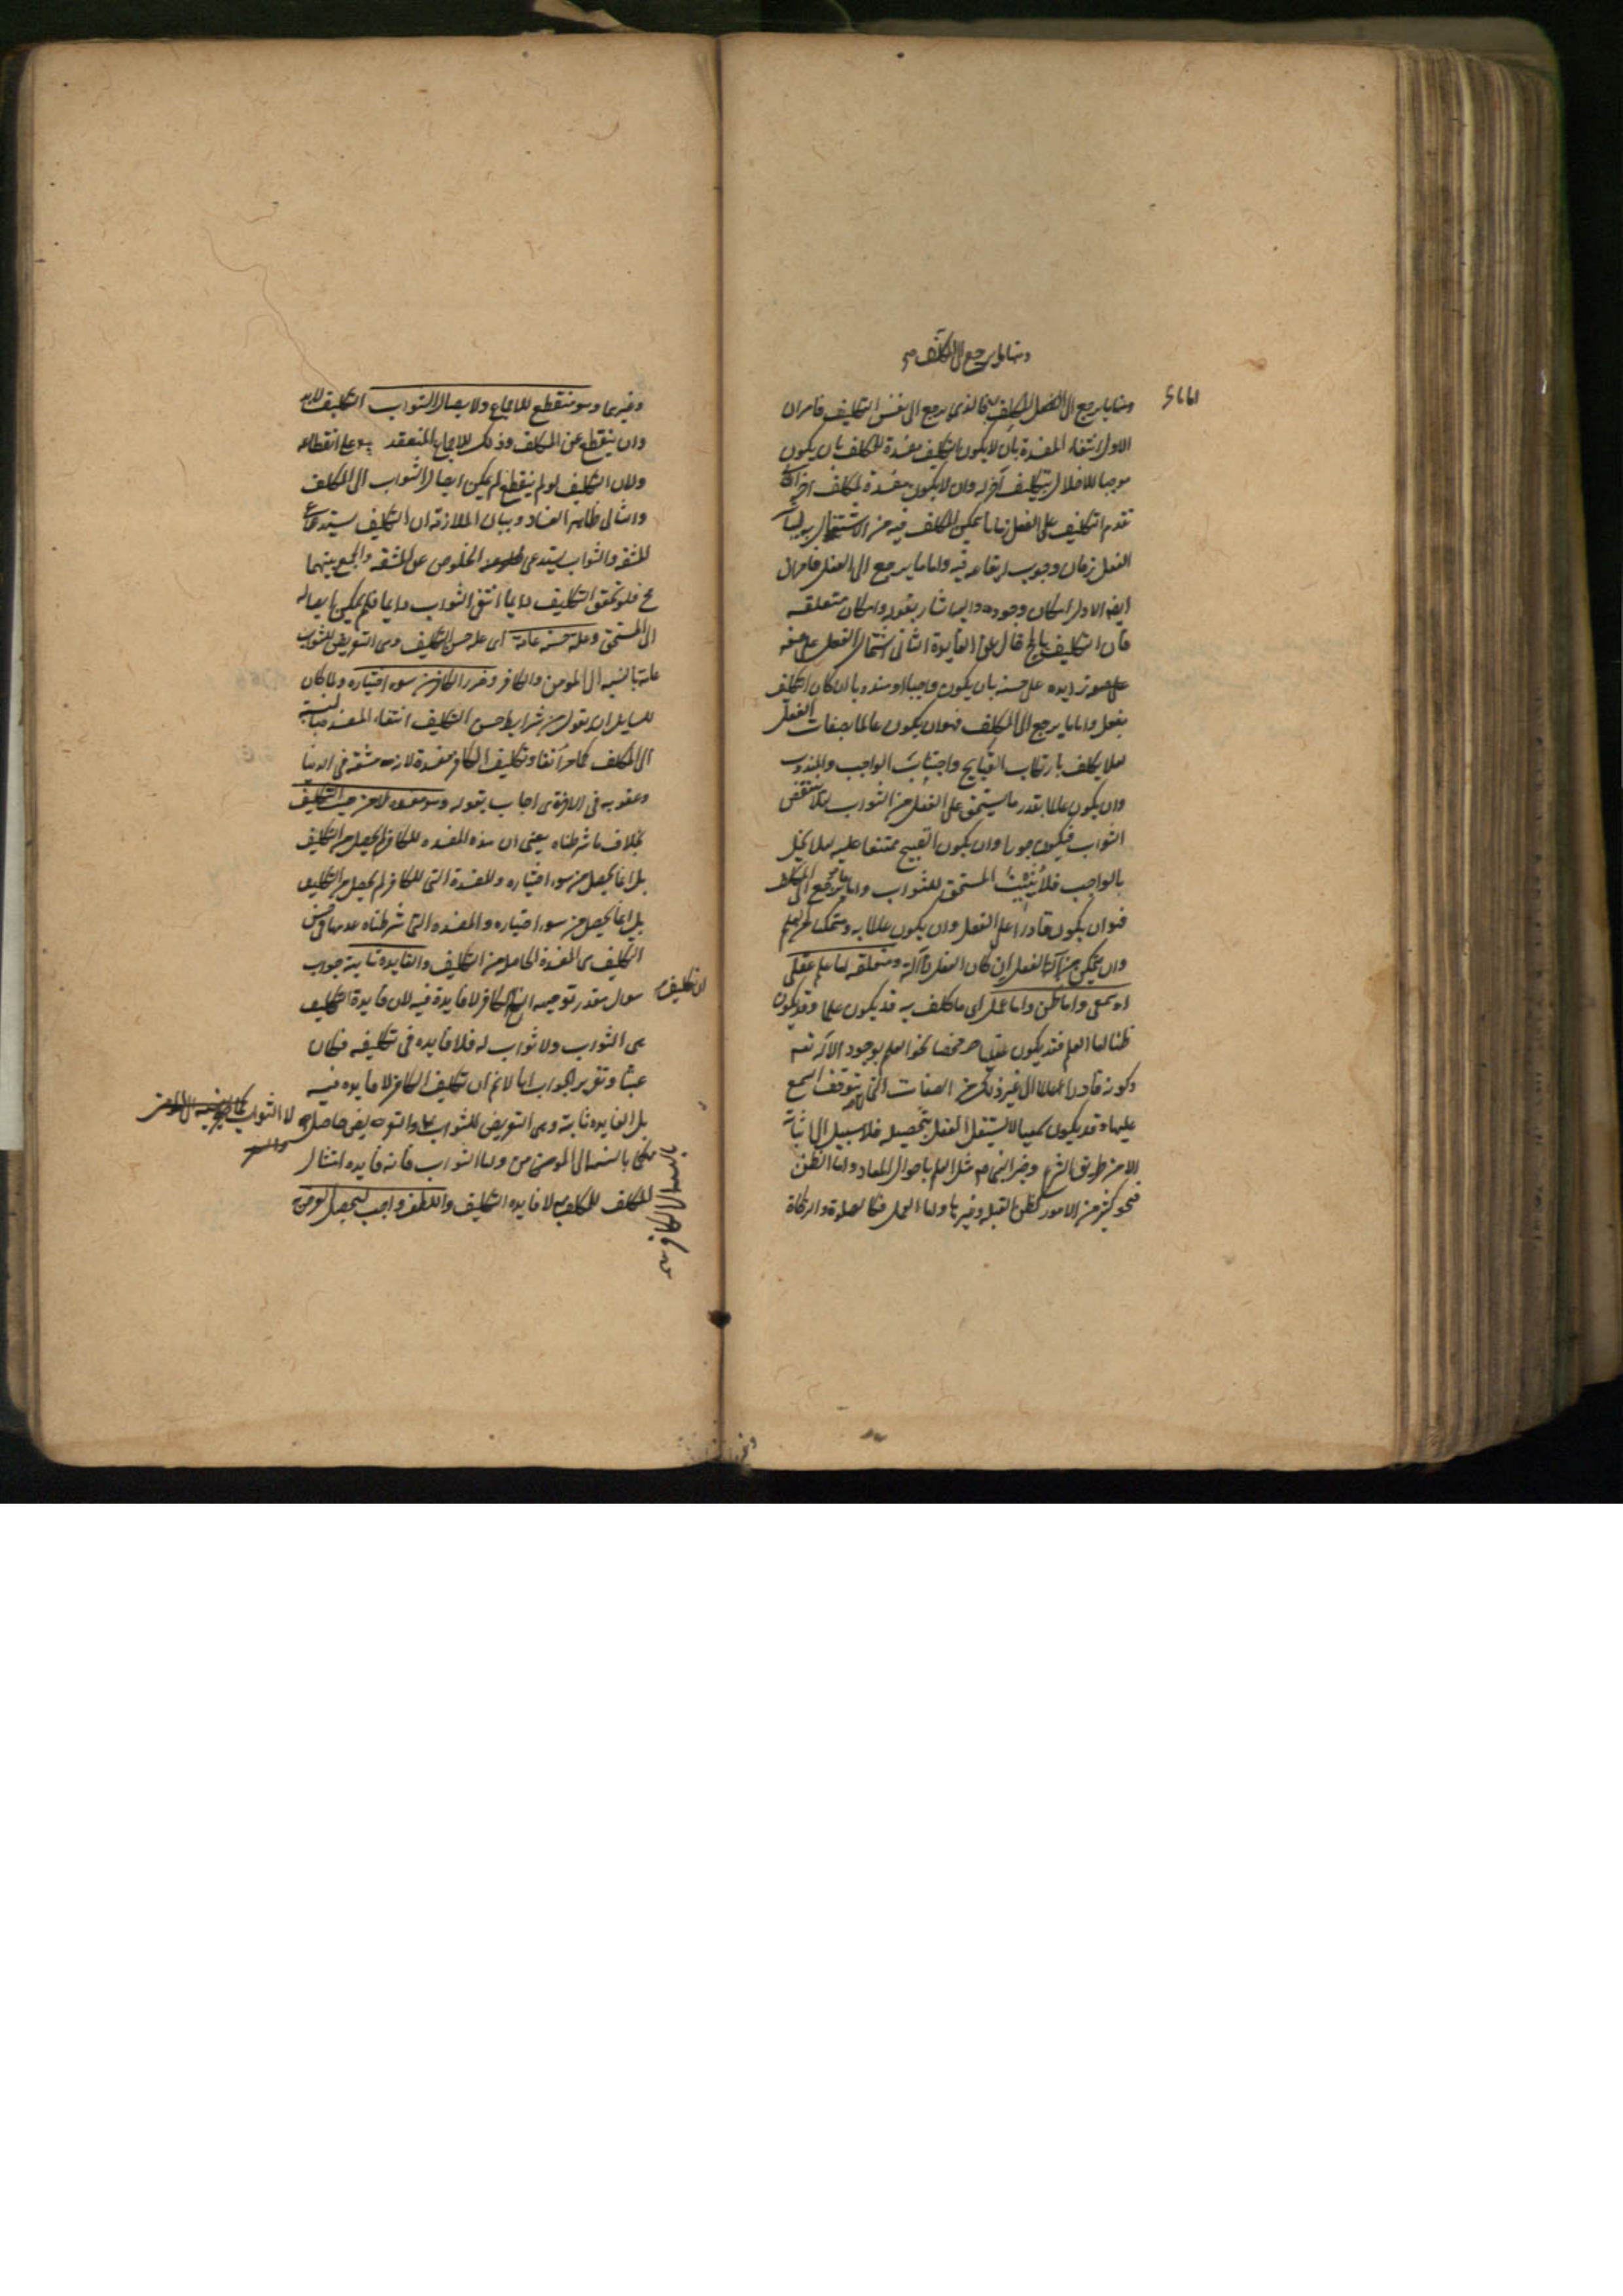 ومنها ما يرجع الى المكلف صح
ومنها ما يرجع الى الفعل المكلف به فالذي يرجع الى نفس التكليف فامران
اما ما
الاول انتفاء المفسدة بان لا يكون التكليف مفسدة للمكلف بان يكون
موجبا للاخلال بتكليف آخر له وان لا يكون مفسدة لمكلف آخر
تقدم التكليف على الفعل زمانا يمكن المكلف فيه من الاشتغال به
الفعل زمان وجوب ايقاعه فيه واما ما يرجع الى الفعل فامران
ايضا الاول امكان وجوده واليه اشار بقوله وامكان متعلقه
فان التكليف بالمحال الثاني اشتمال الفعل على صفة
زايده على حسنه بان يكون واجبا او مندوبا ان كان التكليف
بفعل واما ما يرجع الى المكلف فهو ان يكون عالما بصفات الفعل
لئلا يكلف بارتكاب القبايح واجتناب الواجب والمندوب
وان يكون عالما بقدر ما يستحق على الفعل من الثواب لئلا ينقص
الثواب فيكون جورا وان يكون القبيح ممتنعا عليه لئلا يخل
بالواجب فلا يثيب المستحق للثواب واما ما يرجع الى المكلف
فهو ان يكون قادرا على الفعل وان يكون عالما به او متمكنا من العلم
وان يمكن من آلة الفعل ان كان الفعل ذا آلة ومتعلقه اما علم عقلي
او سمعي واما ظن واما عمل اي ما كلف به قد يكون علما وقد يكون
ظنا اما العلم فقد يكون عقليا محضا نحو العلم بوجود الاله تعالى
وكونه قادرا عالما الى غير ذلك من الصفات التي يتوقف السمع
عليها وقد يكون سمعيا لا يستقل العقل بتحصيله فلا سبيل الى اثباته
الا من طريق الشرع مثل العلم باحوال المعاد واما الظن
فنحو كثير من الامور كظن القبلة وغيرها واما العمل فكالصلوة والزكاة
وغيرهما وهو منقطع للاجماع ولايصال الثواب التكليف لابد
وان ينقطع عن المكلف وذلك للاجماع المنعقد على انقطاعه
ولان التكليف لو لم ينقطع لم يمكن ايصال الثواب الى المكلف
والتالي ظاهر الفساد وبيان الملازمة ان التكليف يستدعي
المشقة والثواب يستدعي الخلوص عن المشقه والجمع بينهما
مح فلو تحقق التكليف دايما انتفى الثواب دايما فلم يمكن ايصاله
الى المستحق وعلة حسنه عامة اي علة حسن التكليف وهي التعريض للثواب
عامة بالنسبه الى المومن والكافر وضرر الكافر من سوء اختياره ولما كان
للسايل ان يقول من شرايط حسن التكليف انتفاء المفسدة بالنسبة
الى المكلف كما مر آنفا وتكليف الكافر مفسدة لانه مشقة في الدنيا
وعقوبه في الاخرة اجاب بقوله وهو مفسده لا من حيث التكليف
بخلاف ما شرطناه يعني ان هذه المفسده للكافر لم يحصل من التكليف
بل انما يحصل من سوء اختياره والمفسدة التي للكافر لم يحصل من التكليف
بل انما يحصل من سوء اختياره والمفسده التي شرطناه عدمها في حسن
التكليف هي المفسدة الحاصلة من التكليف والفايده ثابتة جواب
سوال مقدر توجيهه الكافر لا فايدة فيه لان فايدة التكليف
ان تكليف
هي الثواب ولا ثواب له فلا فايده في تكليفه فكان
عبثا وتقرير الجواب انا لانم ان تكليف الكافر لا فايده فيه
بل الفايده ثابتة وهي التعريض للثواب
لا الثواب
بالنسبة الى المومن واما الثواب فانه فايده امتثال
بالنسبة الى الكافر
المكلف للمكلف به لا فايده التكليف واللطف واجب ليحصل الغرض به